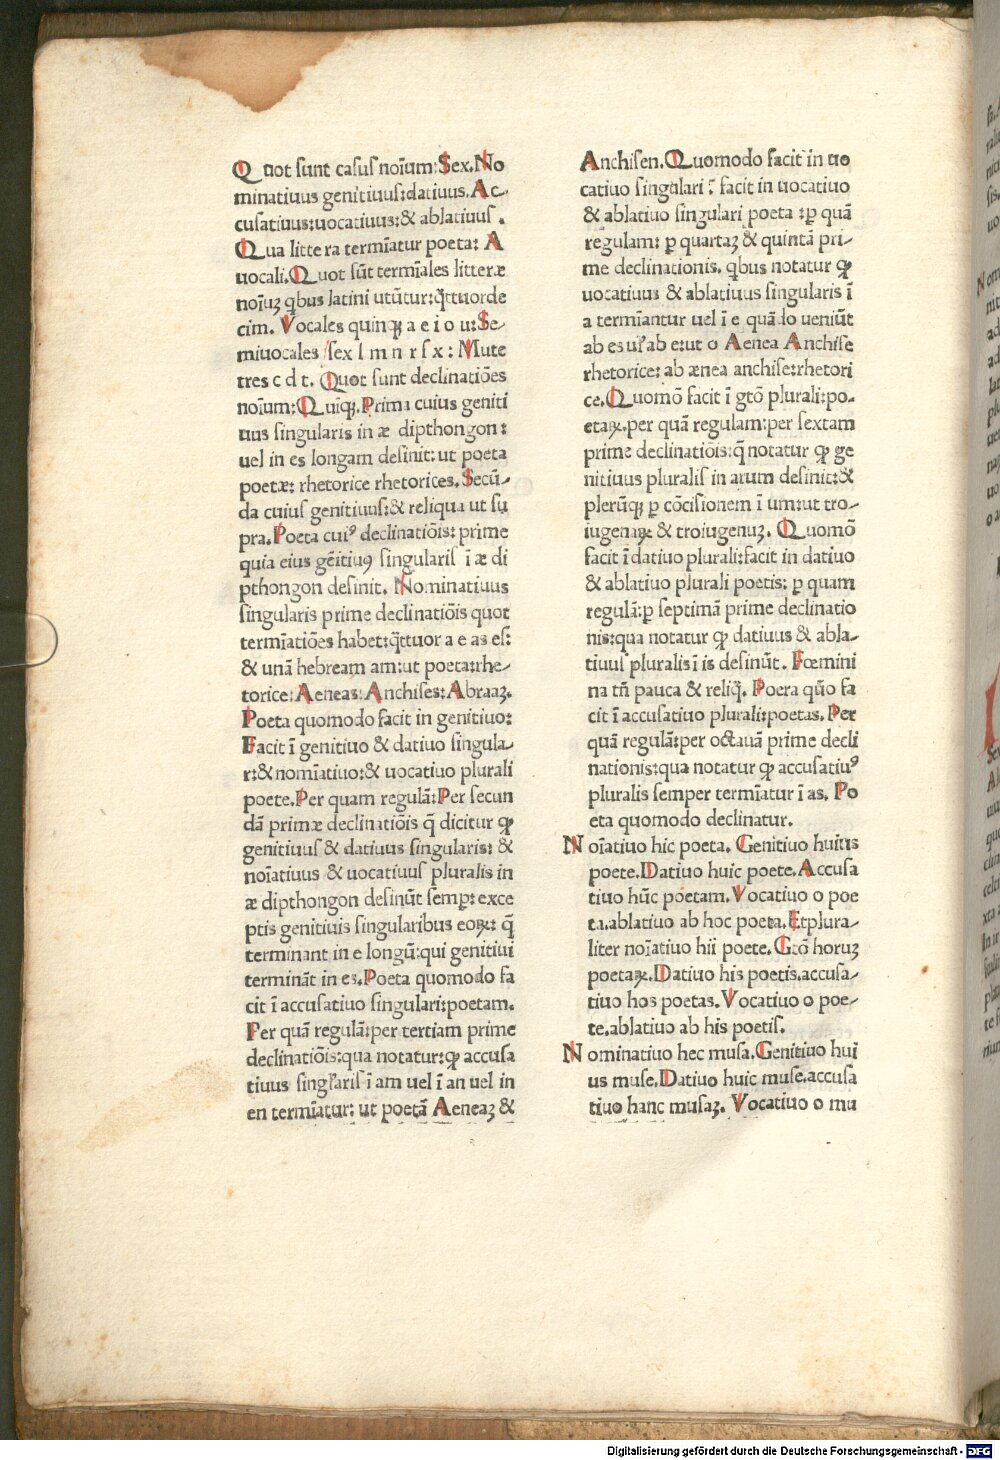 Quot sunt casus noīum: Sex. No
minatiuus genitiuus: datiuus. Ac-
cusatiuus: uocatiuus: & ablatiuus.
Qua littera termīatur poeta: A
uocali. Quot sūt termīales litteræ
noīuꝫ qbus latini utūtur: q̄ttuorde
cim. Vocales quinqꝫ a e i o u: Se-
miuocales sex l m n r s x: Mute
tres c d t. Quot sunt declinatiōes
noīum: Quīqꝫ. Prima cuius geniti
uus singularis in æ dipthongon:
uel in es longam desinit: ut poeta
poetæ: rhetorice rhetorices. Secū-
da cuius genitiuus: & reliqua ut su
pra. Poeta cuiꝰ declinatiōis: prime
quia eius gēitiuꝯ singularis ī æ di
pthongon desinit. Nominatiuus
singularis prime declinatiōis quot
termīatiōes habet: q̄ttuor a e as es:
& unā hebream am: ut poeta: rhe-
torice: Aeneas: Anchises: Abraaꝫ.
Poeta quomodo facit in genitiuo:
Facit ī genitiuo & datiuo singula-
r: & nomīatiuo: & uocatiuo plurali
poete. Per quam regulā: Per secun
dā primæ declinatiōis q̄ dicitur ꝙ
genitiuus & datiuus singularis: &
noīatiuus & uocatiuus pluralis in
æ dipthongon desinūt semp̱: exce
ptis genitiuis singularibus eoꝝ: q̄
terminant in e longū: qui genitiui
termināt in es. Poeta quomodo fa
cit ī accusatiuo singulari: poetam.
Per quā regulā: per tertiam prime
declinatiōis: qua notatur: ꝙ accusa
tiuus singłaris ī am uel ī an uel in
en termīatur: ut poetā Aeneaꝫ &
Anchisen. Quomodo facit in uo
catiuo singulari: facit in uocatiuo
& ablatiuo singulari poeta: ꝑ quā
regulam: ꝑ quartaꝫ & quintā pri-
me declinationis. qbus notatur ꝙ
uocatiuus & ablatiuus singularis ī
a termīantur uel ī e quādo ueniūt
ab es uł ab e: ut o Aenea Anchise
rhetorice: ab ænea anchise: rhetori
ce. Quomō facit ī gtō plurali: po-
etaꝝ. per quā regulam: per sextam
prime declinatiōis: q̄ notatur ꝙ ge
nitiuus pluralis in arum desinit: &
plerūqꝫ ꝑ cōcisionem ī um: ut tro-
iugenaꝝ & troiugenuꝫ. Quomō
facit ī datiuo plurali: facit in datiuo
& ablatiuo plurali poetis: ꝑ quam
regulā: ꝑ septimā prime declinatio
nis: qua notatur ꝙ datiuus & abla-
tiuus pluralis ī is desinūt. Fœmini
na tn̄ pauca & reliq̄. Poera quō fa
cit ī accusatiuo plurali: poetas. Per
quā regulā: per octauā prime decli
nationis: qua notatur ꝙ accusatiuꝰ
pluralis semper termīatur ī as. Po
eta quomodo declinatur.
Noīatiuo hic poeta. Genitiuo huius
poete. Datiuo huic poete. Accusa
tiuo hūc poetam. Vocatiuo o poe
ta. ablatiuo ab hoc poeta. Et plura-
liter noīatiuo hii poete. Gtō horuꝫ
poetaꝝ. Datiuo his poetis. accusa-
tiuo hos poetas. Vocatiuo o poe-
te. ablatiuo ab his poetis.
Nominatiuo hec musa. Genitiuo hui
us muse. Datiuo huic muse. accusa
tiuo hanc musaꝫ. Vocatiuo o mu
Digitalisierung gefördert durch die Deutsche Forschungsgemeinschaft - DFG